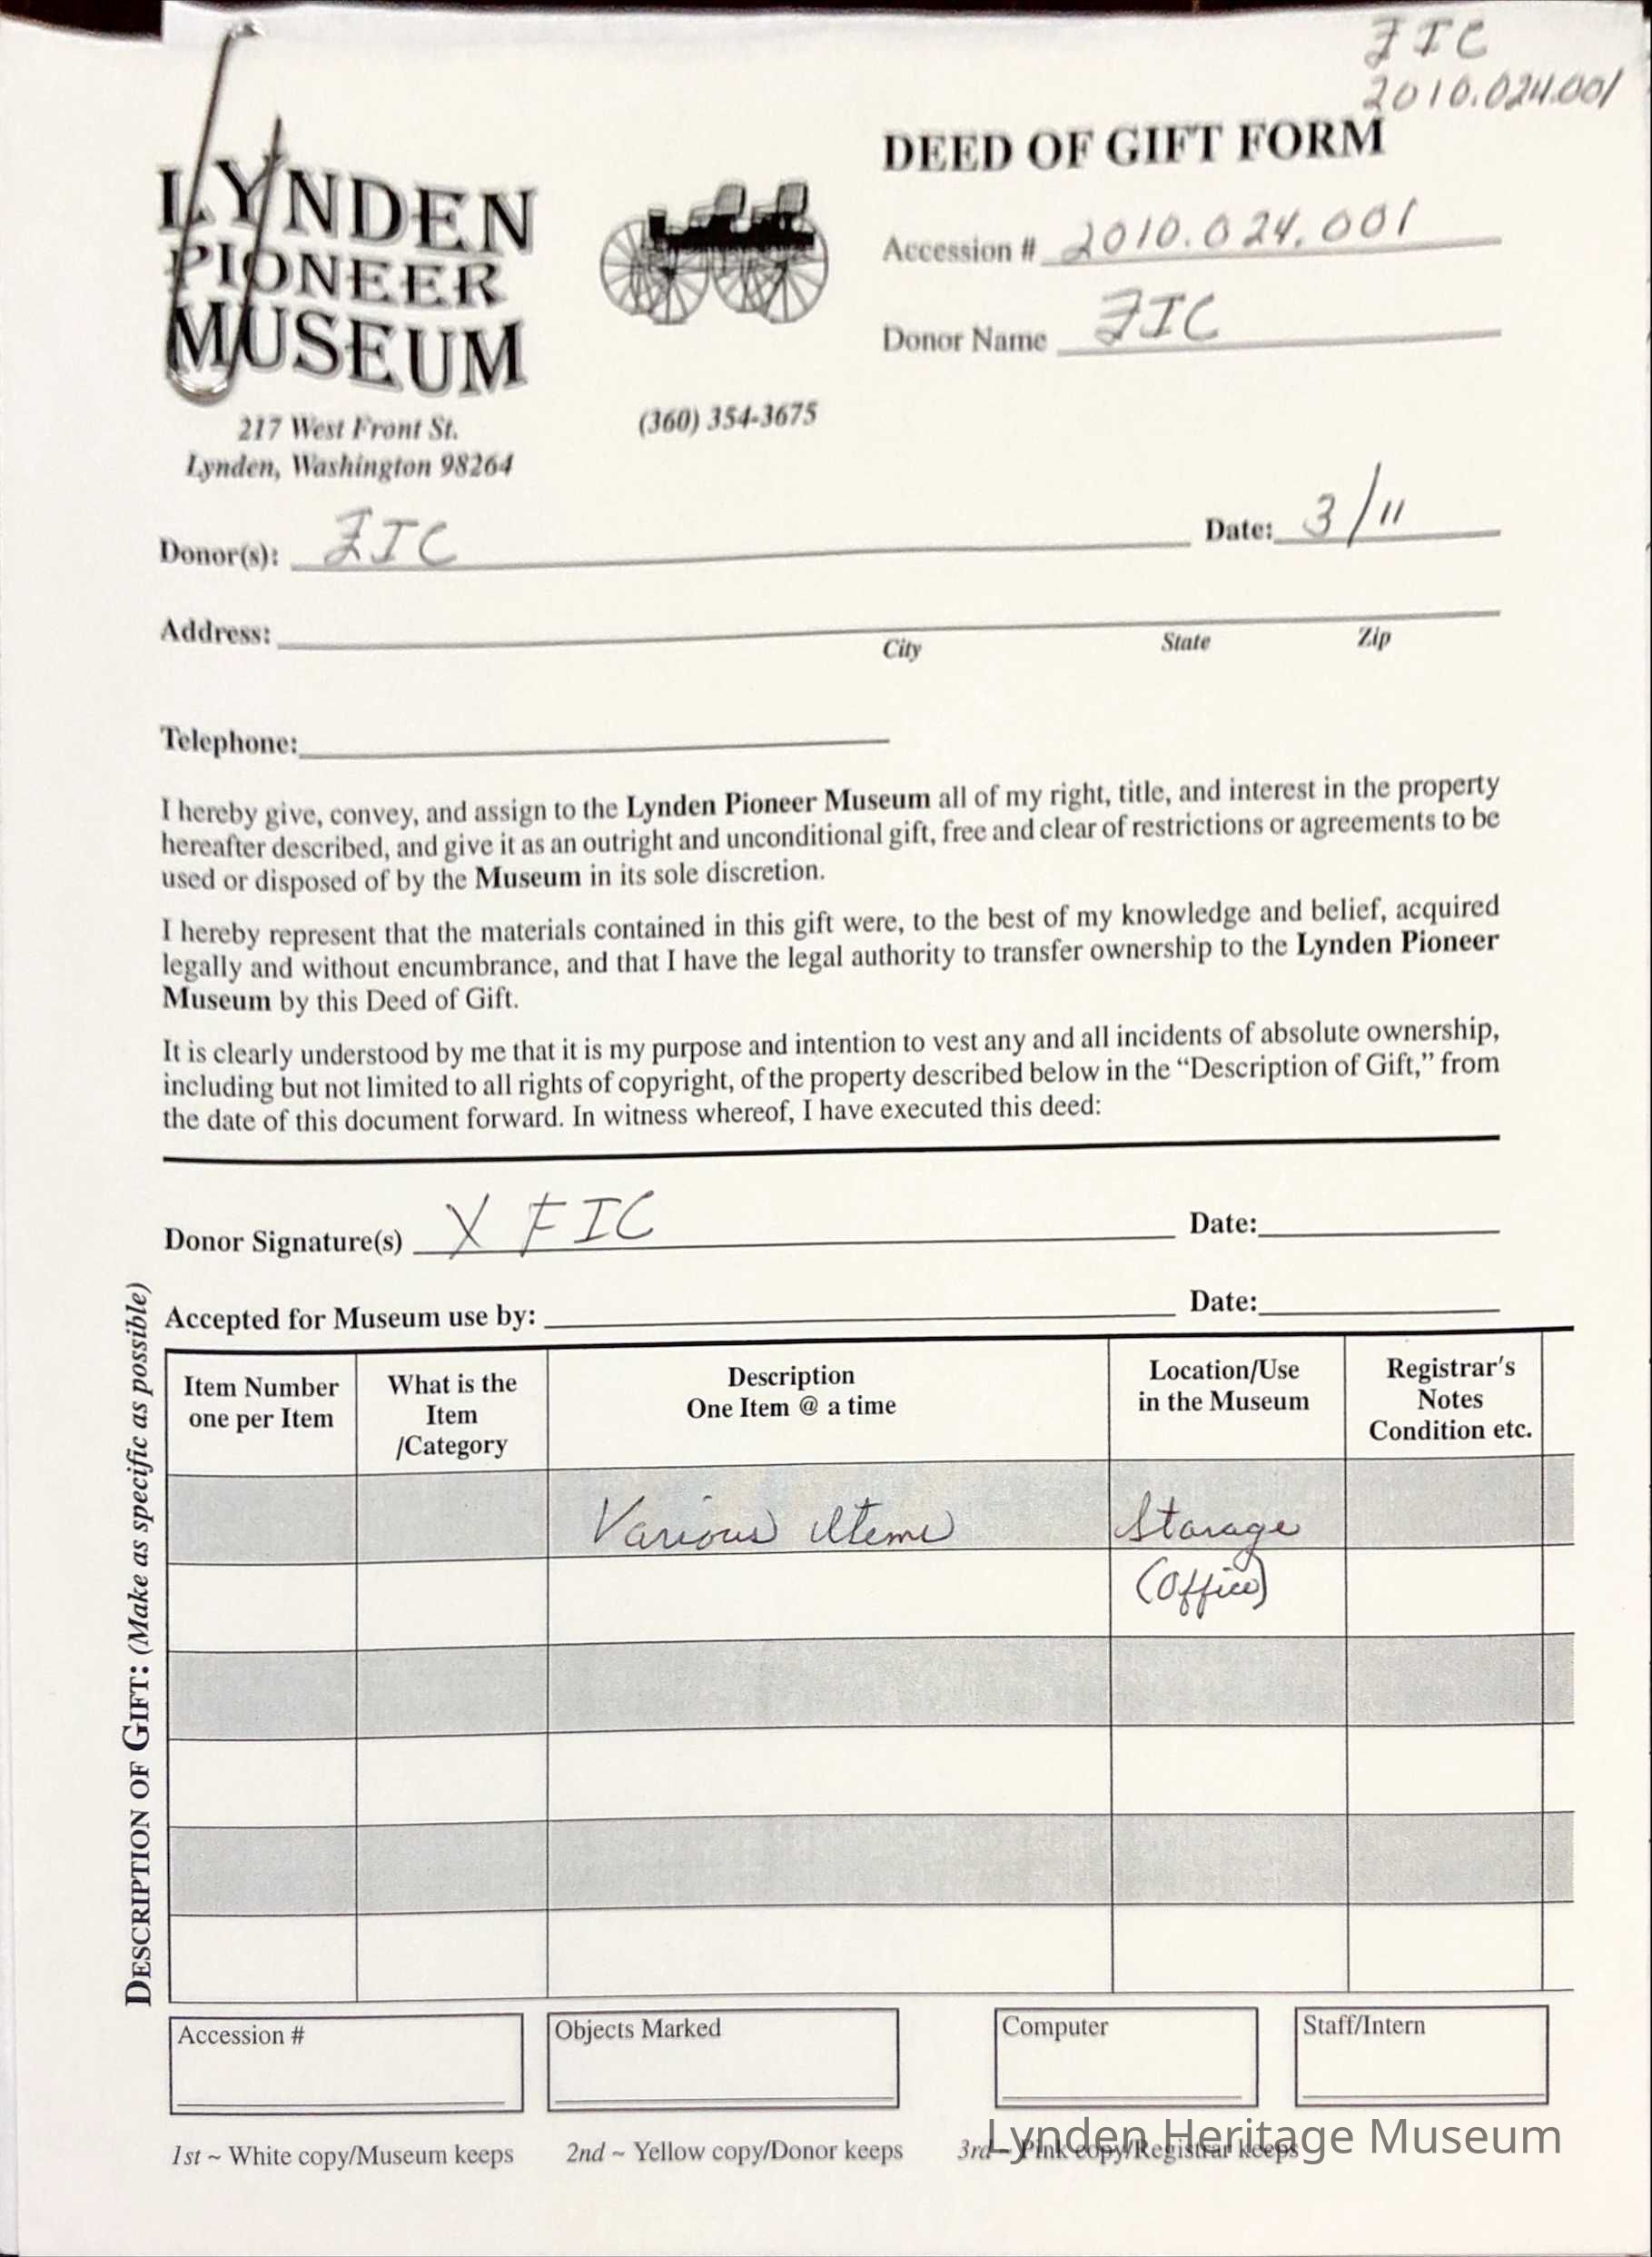 FIC
2010.024.001
DEED OF GIFT FORM
LYNDEN
PIONEER
MUSEUM
Accession # 2010.024.001
Donor Name FIC
217 West Front St.
(360) 354-3675
Lynden, Washington 98264
Donor(s): FIC Date: 3/11
Address:
City State Zip
Telephone:
I hereby give, convey, and assign to the Lynden Pioneer Museum all of my right, title, and interest in the property
hereafter described, and give it as an outright and unconditional gift, free and clear of restrictions or agreements to be
used or disposed of by the Museum in its sole discretion.
I hereby represent that the materials contained in this gift were, to the best of my knowledge and belief, acquired
legally and without encumbrance, and that I have the legal authority to transfer ownership to the Lynden Pioneer
Museum by this Deed of Gift.
It is clearly understood by me that it is my purpose and intention to vest any and all incidents of absolute ownership,
including but not limited to all rights of copyright, of the property described below in the “Description of Gift,” from
the date of this document forward. In witness whereof, I have executed this deed:
Donor Signature(s) X FIC Date:
Accepted for Museum use by: Date:
DESCRIPTION OF GIFT: (Make as specific as possible)
Item Number
one per Item
What is the
Item
/Category
Description
One Item @ a time
Location/Use
in the Museum
Registrar's
Notes
Condition etc.
Various Items Storage
(Office)
Accession # Objects Marked Computer Staff/Intern
1st ~ White copy/Museum keeps 2nd ~ Yellow copy/Donor keeps 3rd ~ Pink copy/Registrar keeps
Lynden Heritage Museum